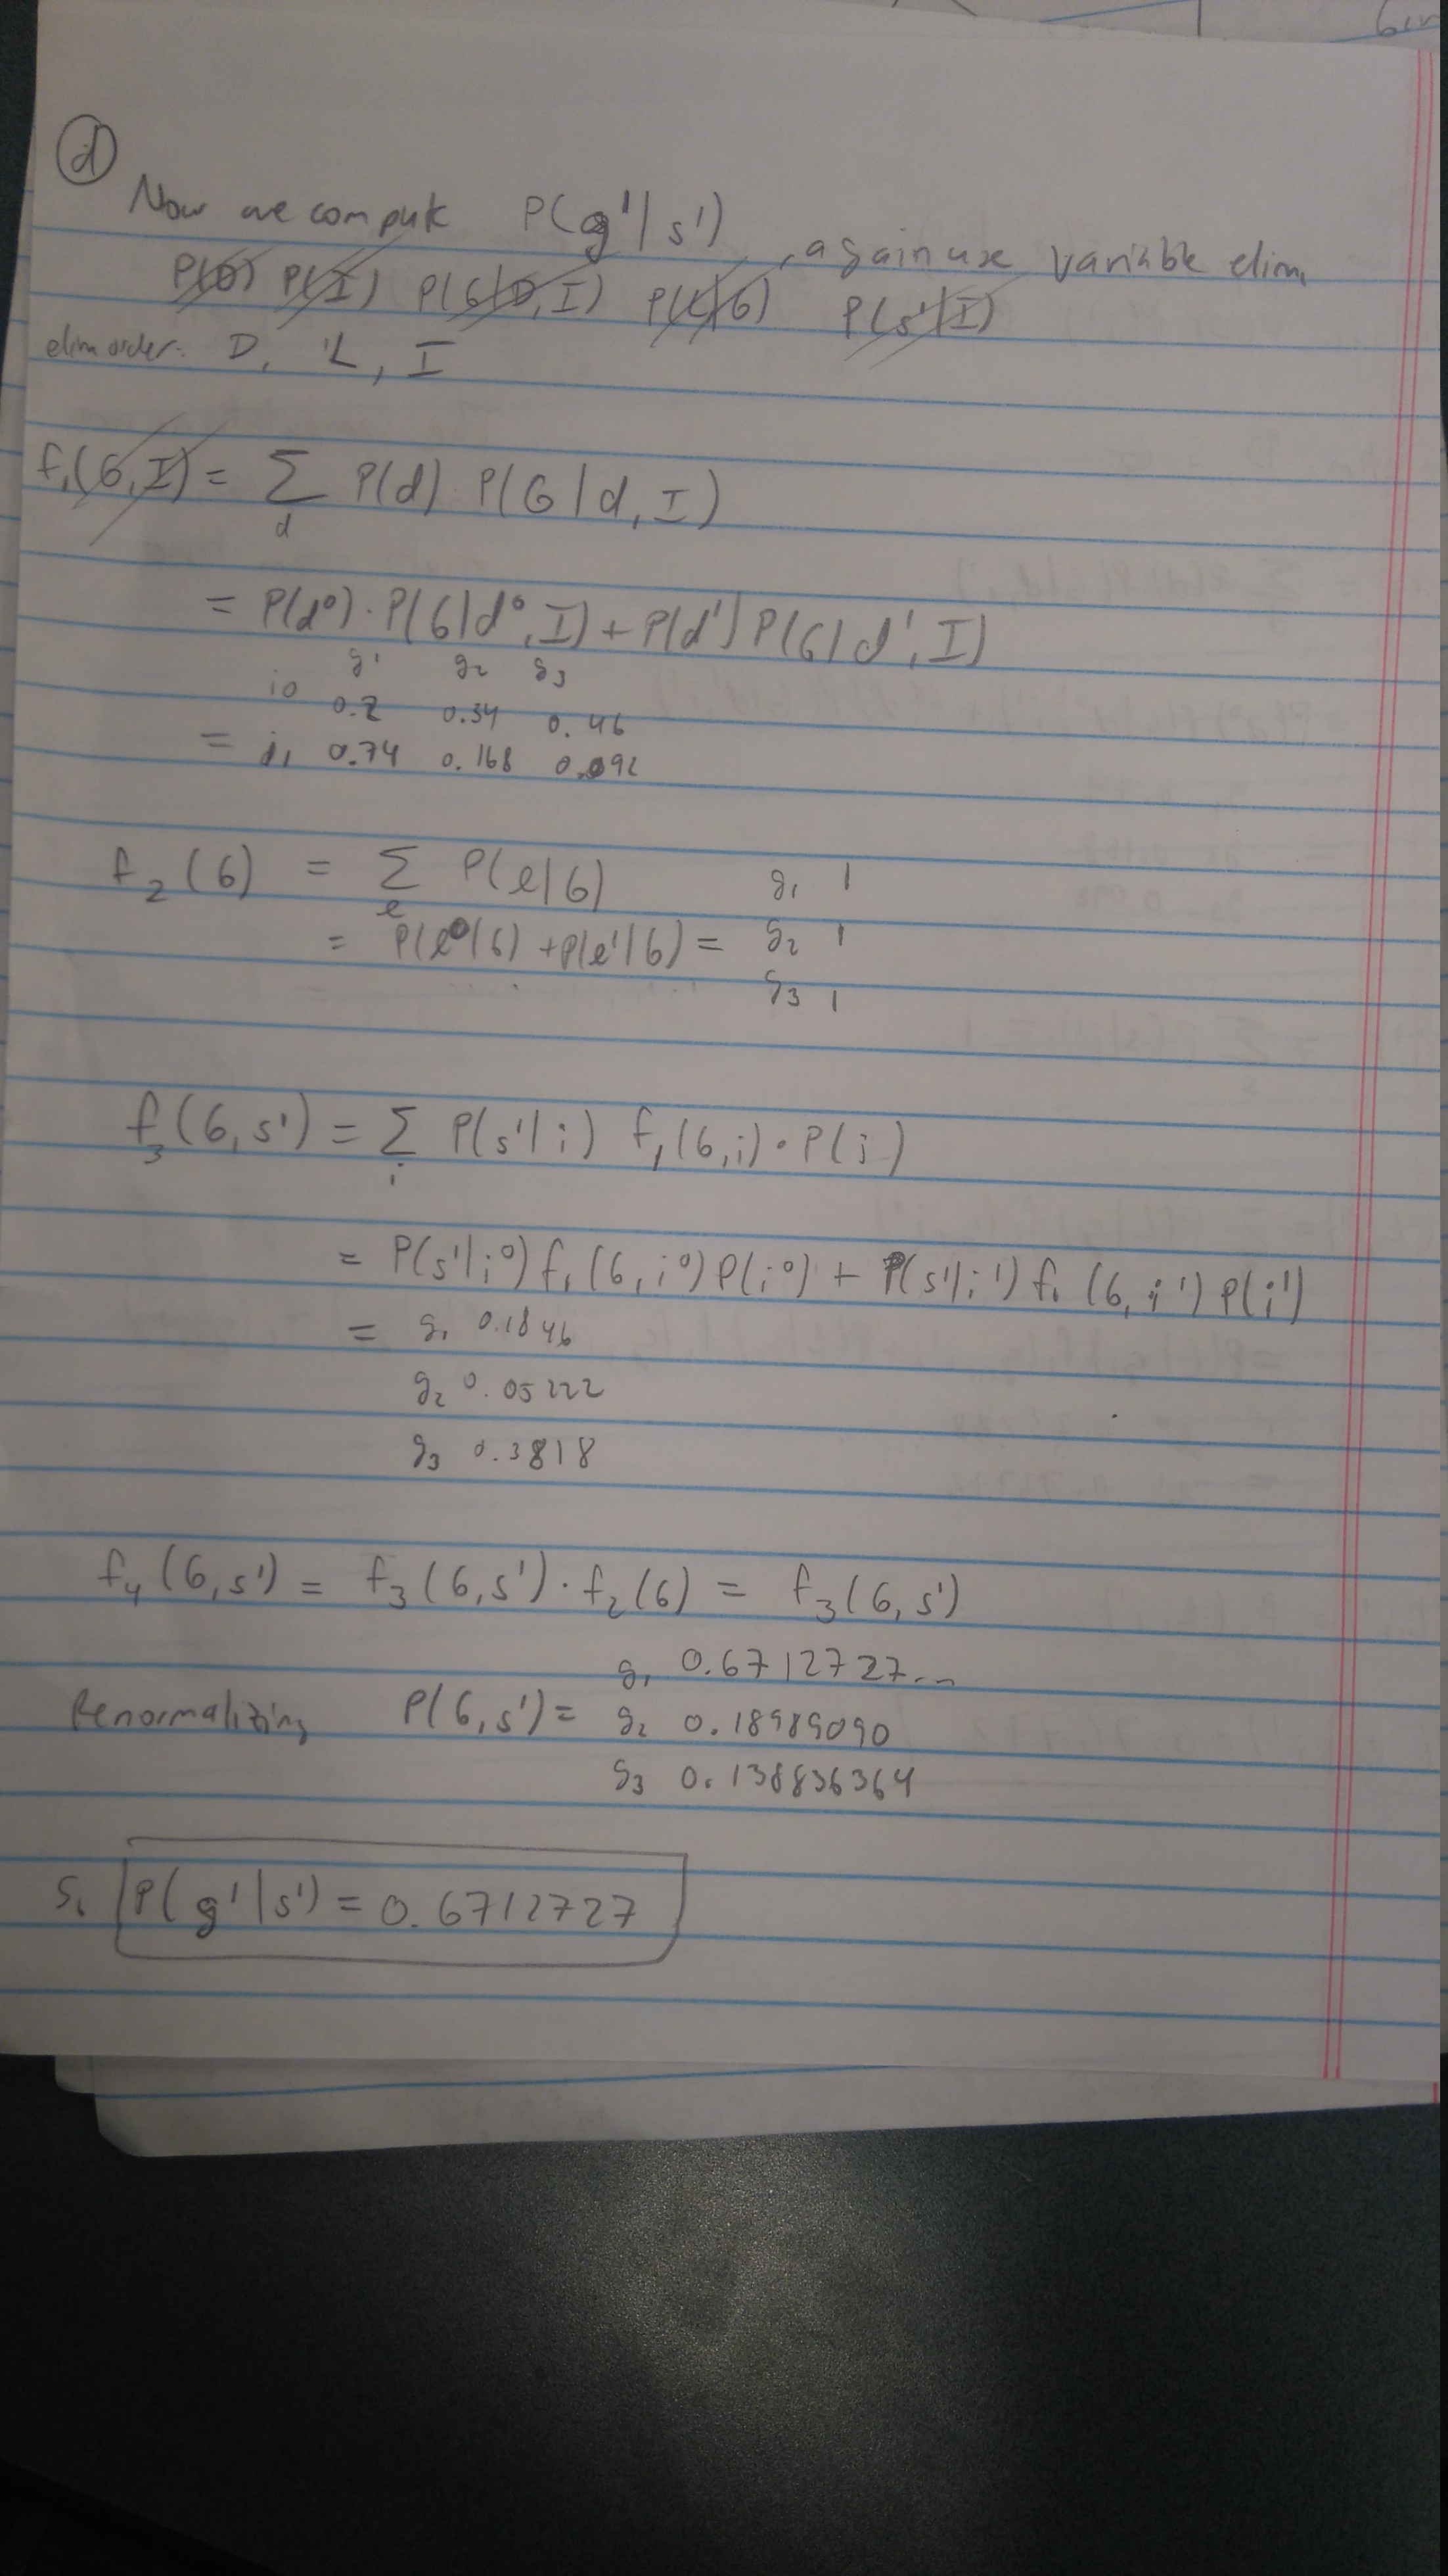 d
Now we compute P(g¹|s¹), again use variable elim.
P(D) P(I) P(G|D,I) P(L|G) P(s¹|I)
elim order: D, L, I
f₁(G,I) = Σ_d P(d) P(G|d,I)
= P(d⁰)·P(G|d⁰,I) + P(d¹)P(G|d¹,I)
g¹ g₂ g₃
i₀ 0.2 0.34 0.46
= i₁ 0.74 0.168 0.092
f₂(G) = Σ_ℓ P(ℓ|G) g₁ 1
= P(ℓ⁰|G) + P(ℓ¹|G) = g₂ 1
g₃ 1
f₃(G,s¹) = Σ_i P(s¹|i) f₁(G,i)·P(i)
= P(s¹|i⁰) f₁(G,i⁰) P(i⁰) + P(s¹|i¹) f₁(G,i¹) P(i¹)
= g₁ 0.1846
g₂ 0.05222
g₃ 0.3818
f₄(G,s¹) = f₃(G,s¹)·f₂(G) = f₃(G,s¹)
g₁ 0.6712727...
Renormalizing P(G,s¹) = g₂ 0.18989090
g₃ 0.138836364
So P(g¹|s¹) = 0.6712727